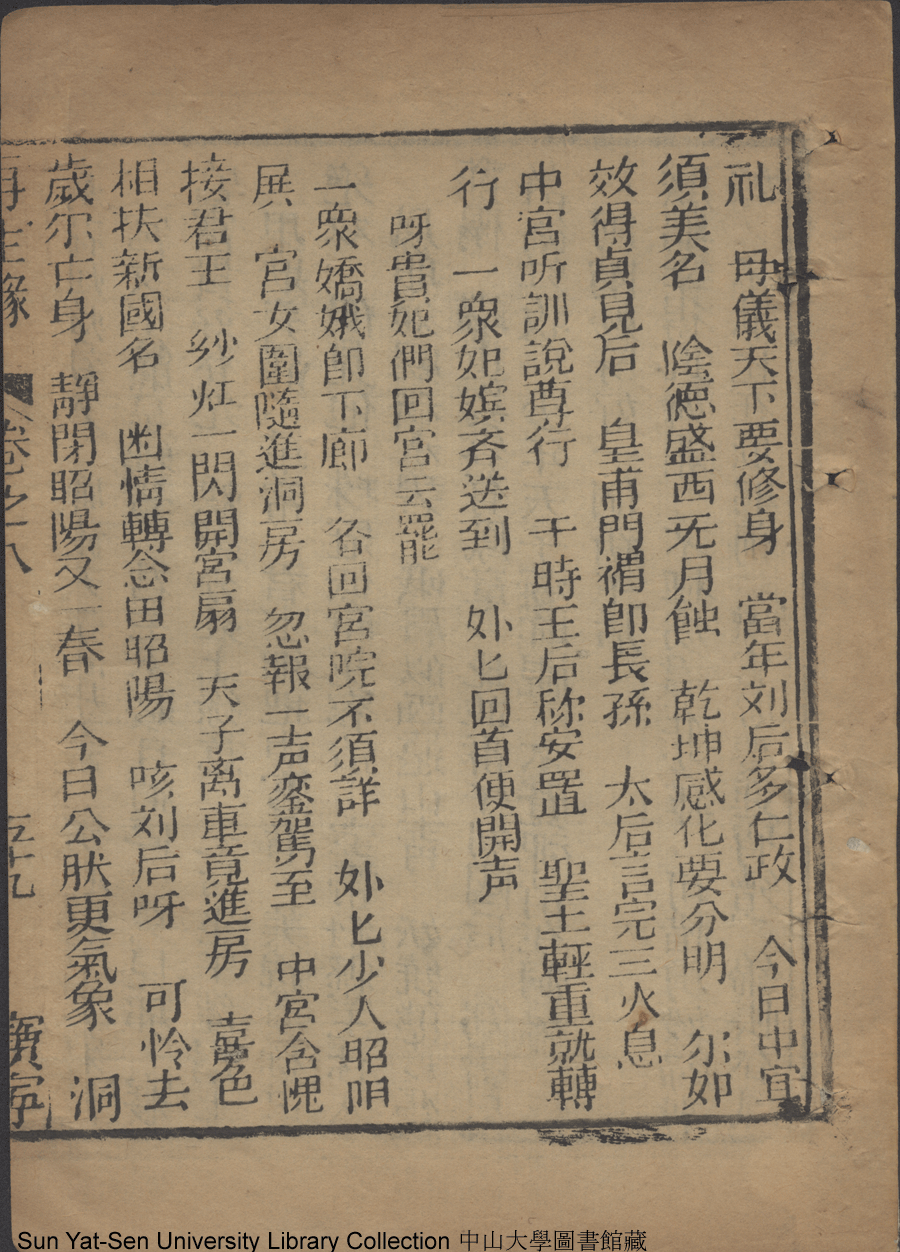 礼　母儀天下要修身　當年刘后多仁政　今日中宫
須美名　陰德盛西旡月蝕　乾坤感化要分明　尔如
效得貞見后　皇甫門楣即長孫　太后言完三火息
中宮听訓説尊行　于時王后称安置　聖主輕重就轉
行　一衆妃嬪斉送到　外匕回首便開声
呀貴妃們回宮云罷
一衆嬌娥卽下廊　各回宮院不須詳　外匕少人昭阳
展　宮女圍隨進洞房　忽報一声鑾駕至　中宮含愧
接君王　纱灯一閃開宮扇　天子离車竟進房　喜色
相扶新國名　幽情轉念田昭陽　咳刘后呀　可怜去
歲尔亡身　靜閉昭陽又一春　今日公肰更氣象　洞
再生緣　卷之十八　五十九　寶寧
Sun Yat-Sen University Library Collection 中山大學圖書館藏